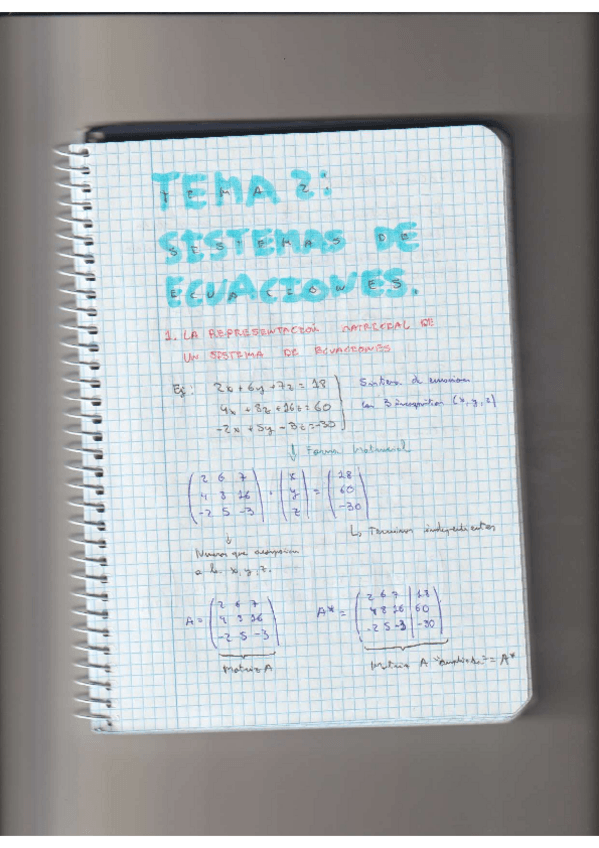 TEMA 2:
SISTEMAS DE
ECUACIONES.
1. LA REPRESENTACION MATRICIAL DE
UN SISTEMA DE ECUACIONES
Ej: 2x + 6y + 7z = 18
4x + 8z + 16z = 60
-2x + 5y - 3z = -30
Sistema de ecuaciones
con 3 incognitas (x, y, z)
↓ Forma Matricial
2 6 7 x 18
4 8 16 · y = 60
-2 5 -3 z -30
↳ Terminos independientes
↓
Numeros que acompañan
a la x, y, z.
A = 2 6 7
4 8 16
-2 5 -3
Matriz A
A* = 2 6 7 | 18
4 8 16 | 60
-2 5 -3 | -30
Matriz A "ampliada" = A*